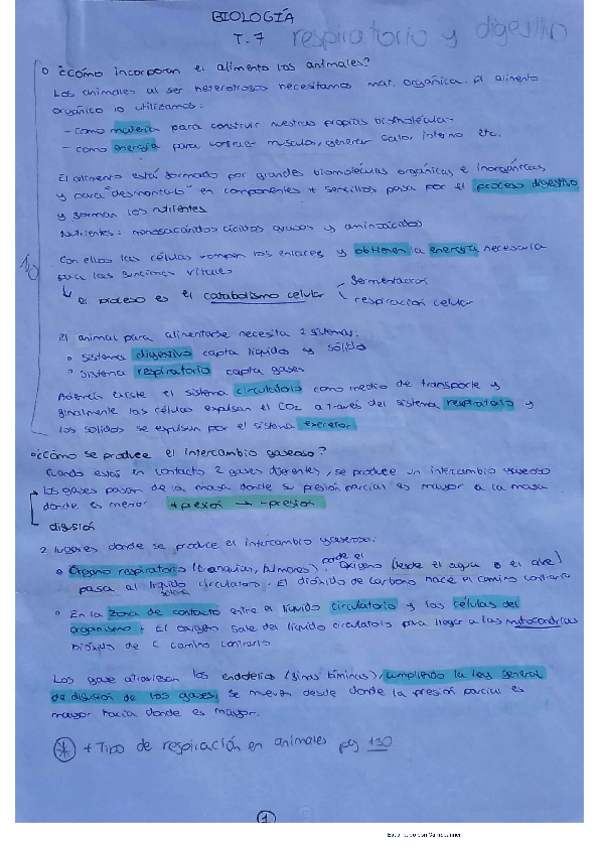 BIOLOGÍA
T. 7 respiratorio y digestivo
o ¿Cómo incorporan el alimento los animales?
Los animales al ser heterotrofos necesitamos mat. orgánica. El alimento
orgánico lo utilizamos:
- como materia para construir nuestras propias biomolecula-
- como energía para contraer musculos, generar calor interno etc.
El alimento está formado por grandes biomoleculas orgánicas, e inorgánicas,
y para "desmontarlo" en componentes + sencillos pasa por el proceso digestivo
y forman los nutrientes
Nutrientes: monosacáridos ácidos grasos y aminoácidos
Con ellos las células rompen los enlaces y obtienen la energía necesaria
para las funciones vitales
el proceso es el catabolismo celular
fermentación
respiración celular
El animal para alimentarse necesita 2 sistemas:
o sistema digestivo capta líquidos y sólido
o sistema respiratorio capta gases
Además existe el sistema circulatorio como medio de transporte y
finalmente las células expulsan el CO2 a través del sistema respiratorio y
los solidos se expulsan por el sistema excretor.
o ¿Cómo se produce el intercambio gaseoso?
Cuando están en contacto 2 gases diferentes, se produce un intercambio gaseoso
Los gases pasan de la masa donde su presión parcial es mayor a la masa
donde es menor +presión → -presión
difusión
2 lugares donde se produce el intercambio gaseoso:
o Órgano respiratorio (branquias, pulmones). parte el Oxígeno (desde el agua o el aire)
pasa al líquido circulatorio. El dióxido de carbono hace el camino contrario
o En la zona de contacto entre a líquido circulatorio y las células del
organismo. El oxígeno sale del líquido circulatorio para llegar a las mitocondrias
Dióxido de C camino contrario
Los gase atraviesan los endotelios (finas láminas), cumpliendo la ley general
de difusión de los gases, se mueven desde donde la presión parcial es
mayor hacia donde es mayor.
* + Tipo de respiración en animales pg 130
1